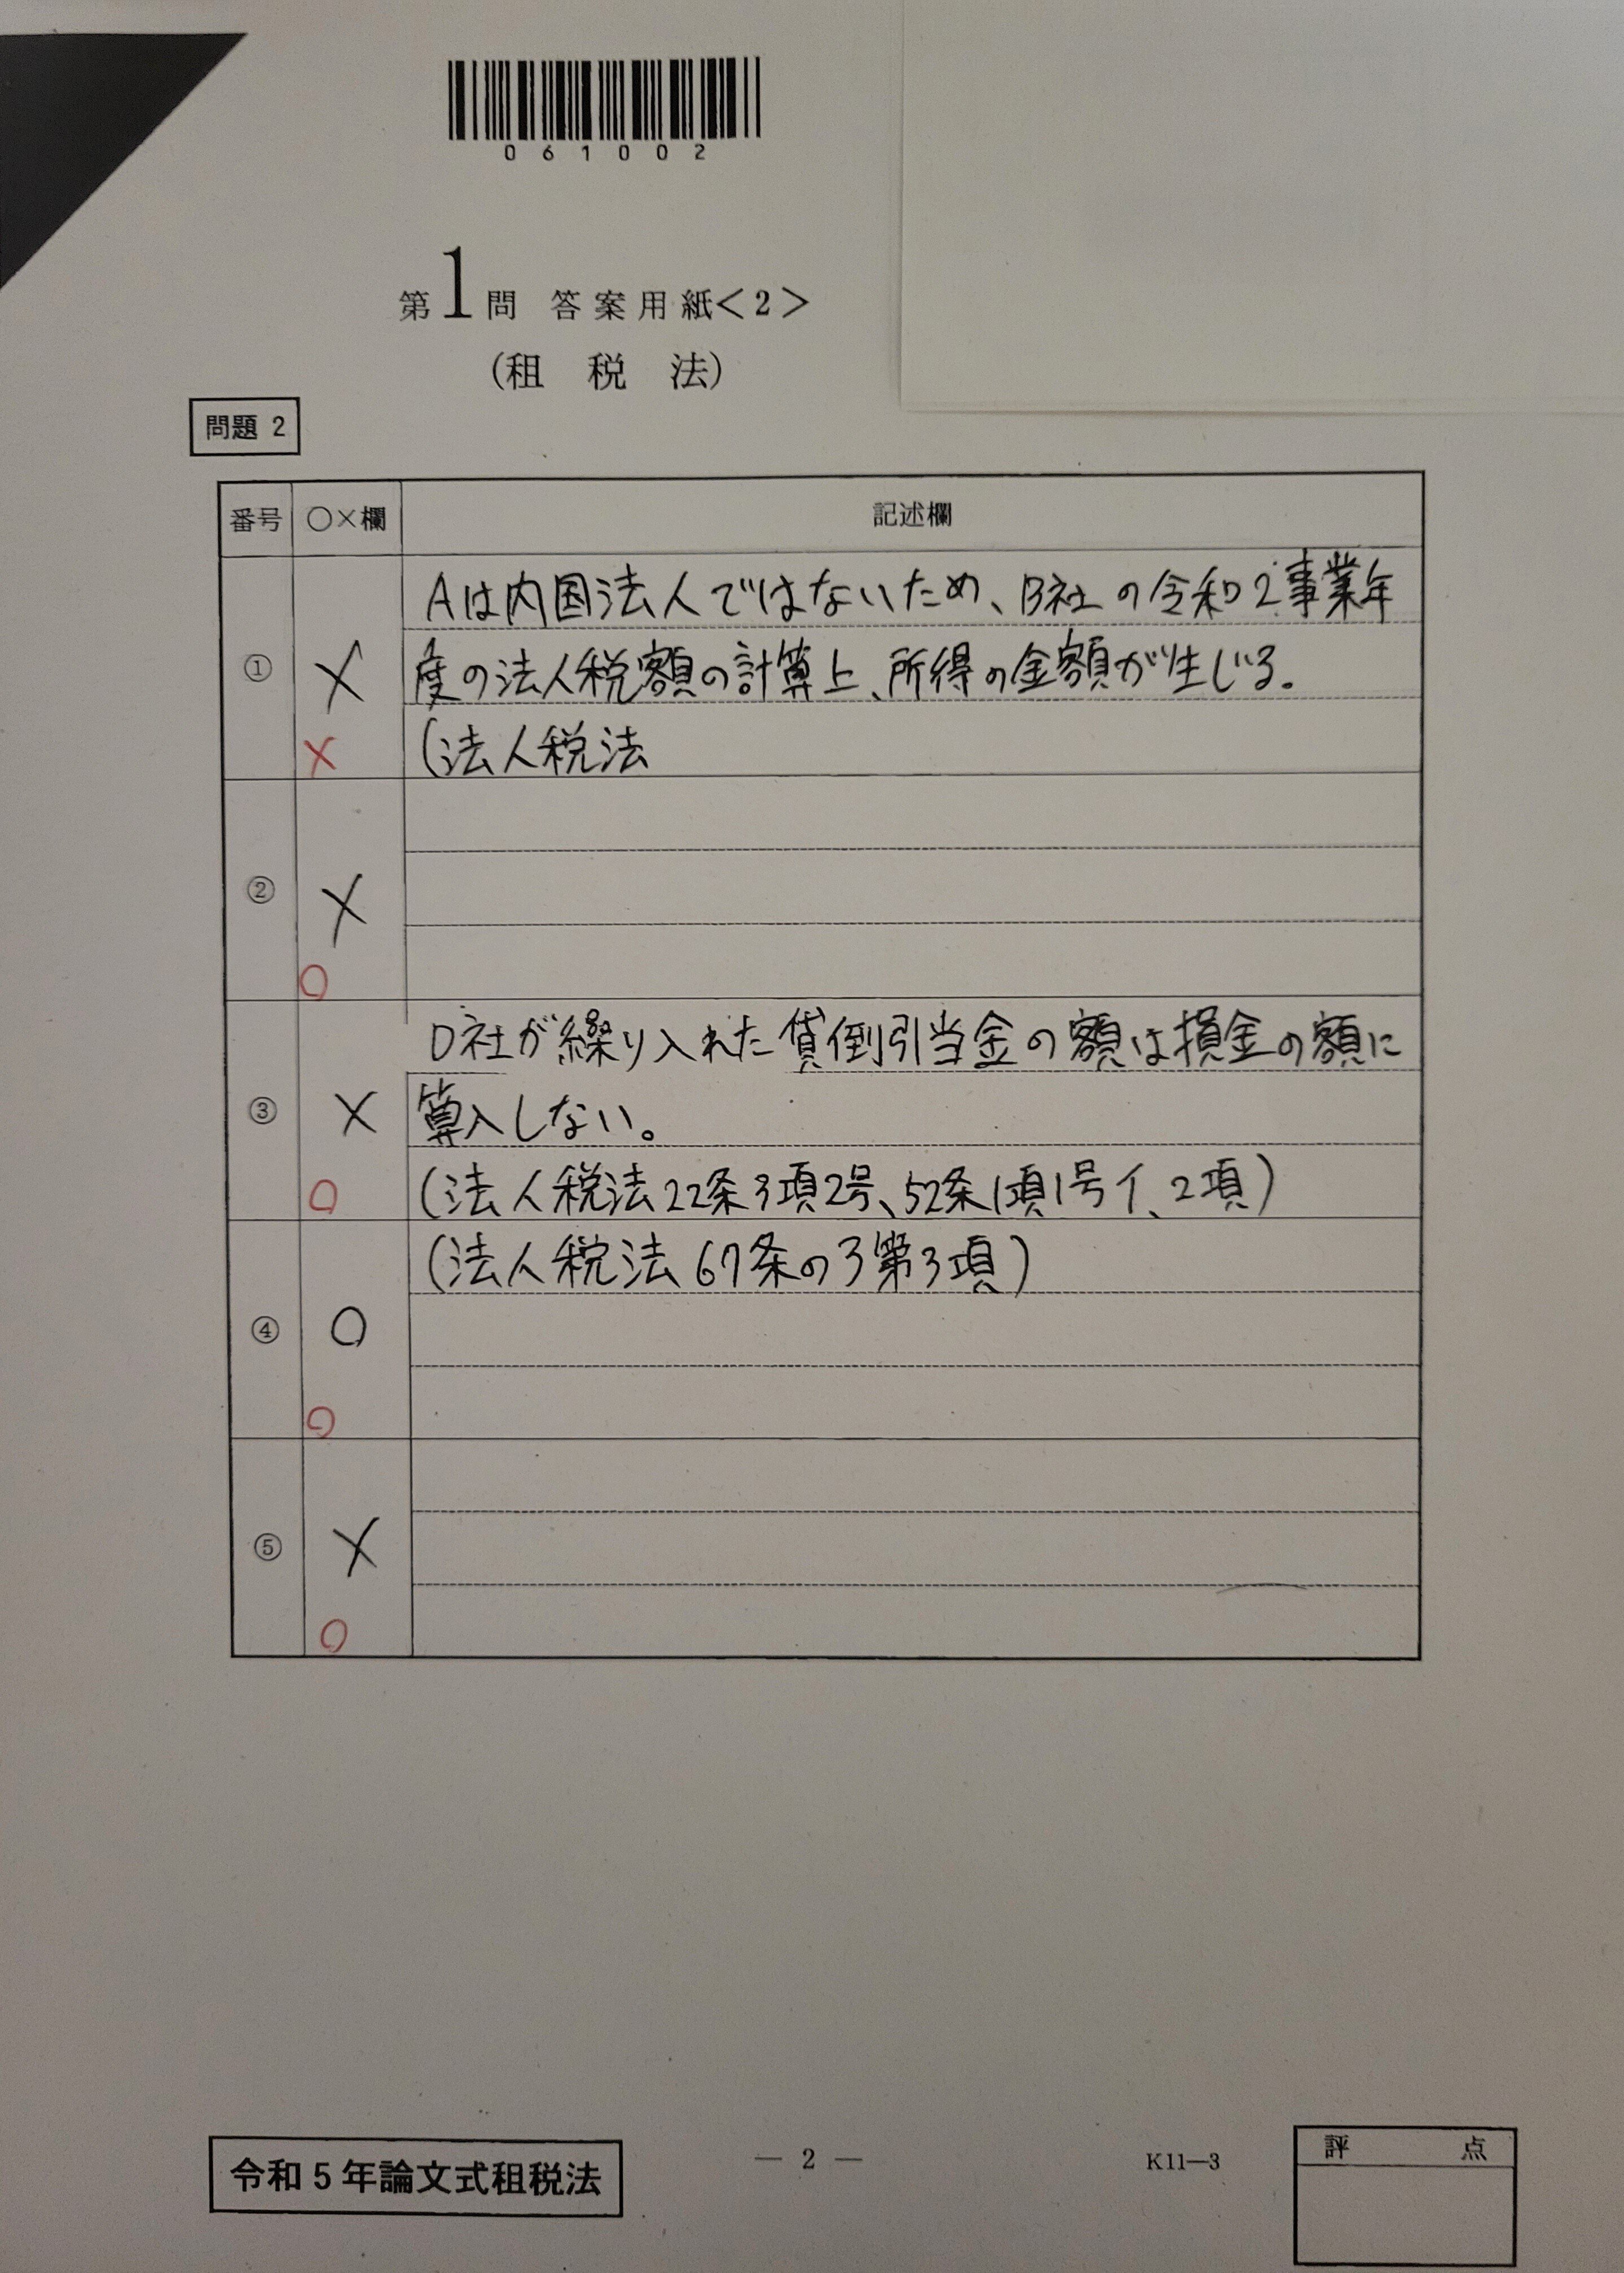 061002
第1問 答案用紙<2>
(租税法)
問題 2
番号 ○×欄 記述欄
Aは内国法人ではないため、B社の令和2事業年
① × 度の法人税額の計算上、所得の金額が生じる。
× (法人税法
② ×
○
D社が繰り入れた貸倒引当金の額は損金の額に
③ × 算入しない。
○ (法人税法22条3項2号、52条1項1号イ、2項)
(法人税法67条の3第3項)
④ ○
○
⑤ ×
○
令和5年論文式租税法
— 2 —
K11—3
評点